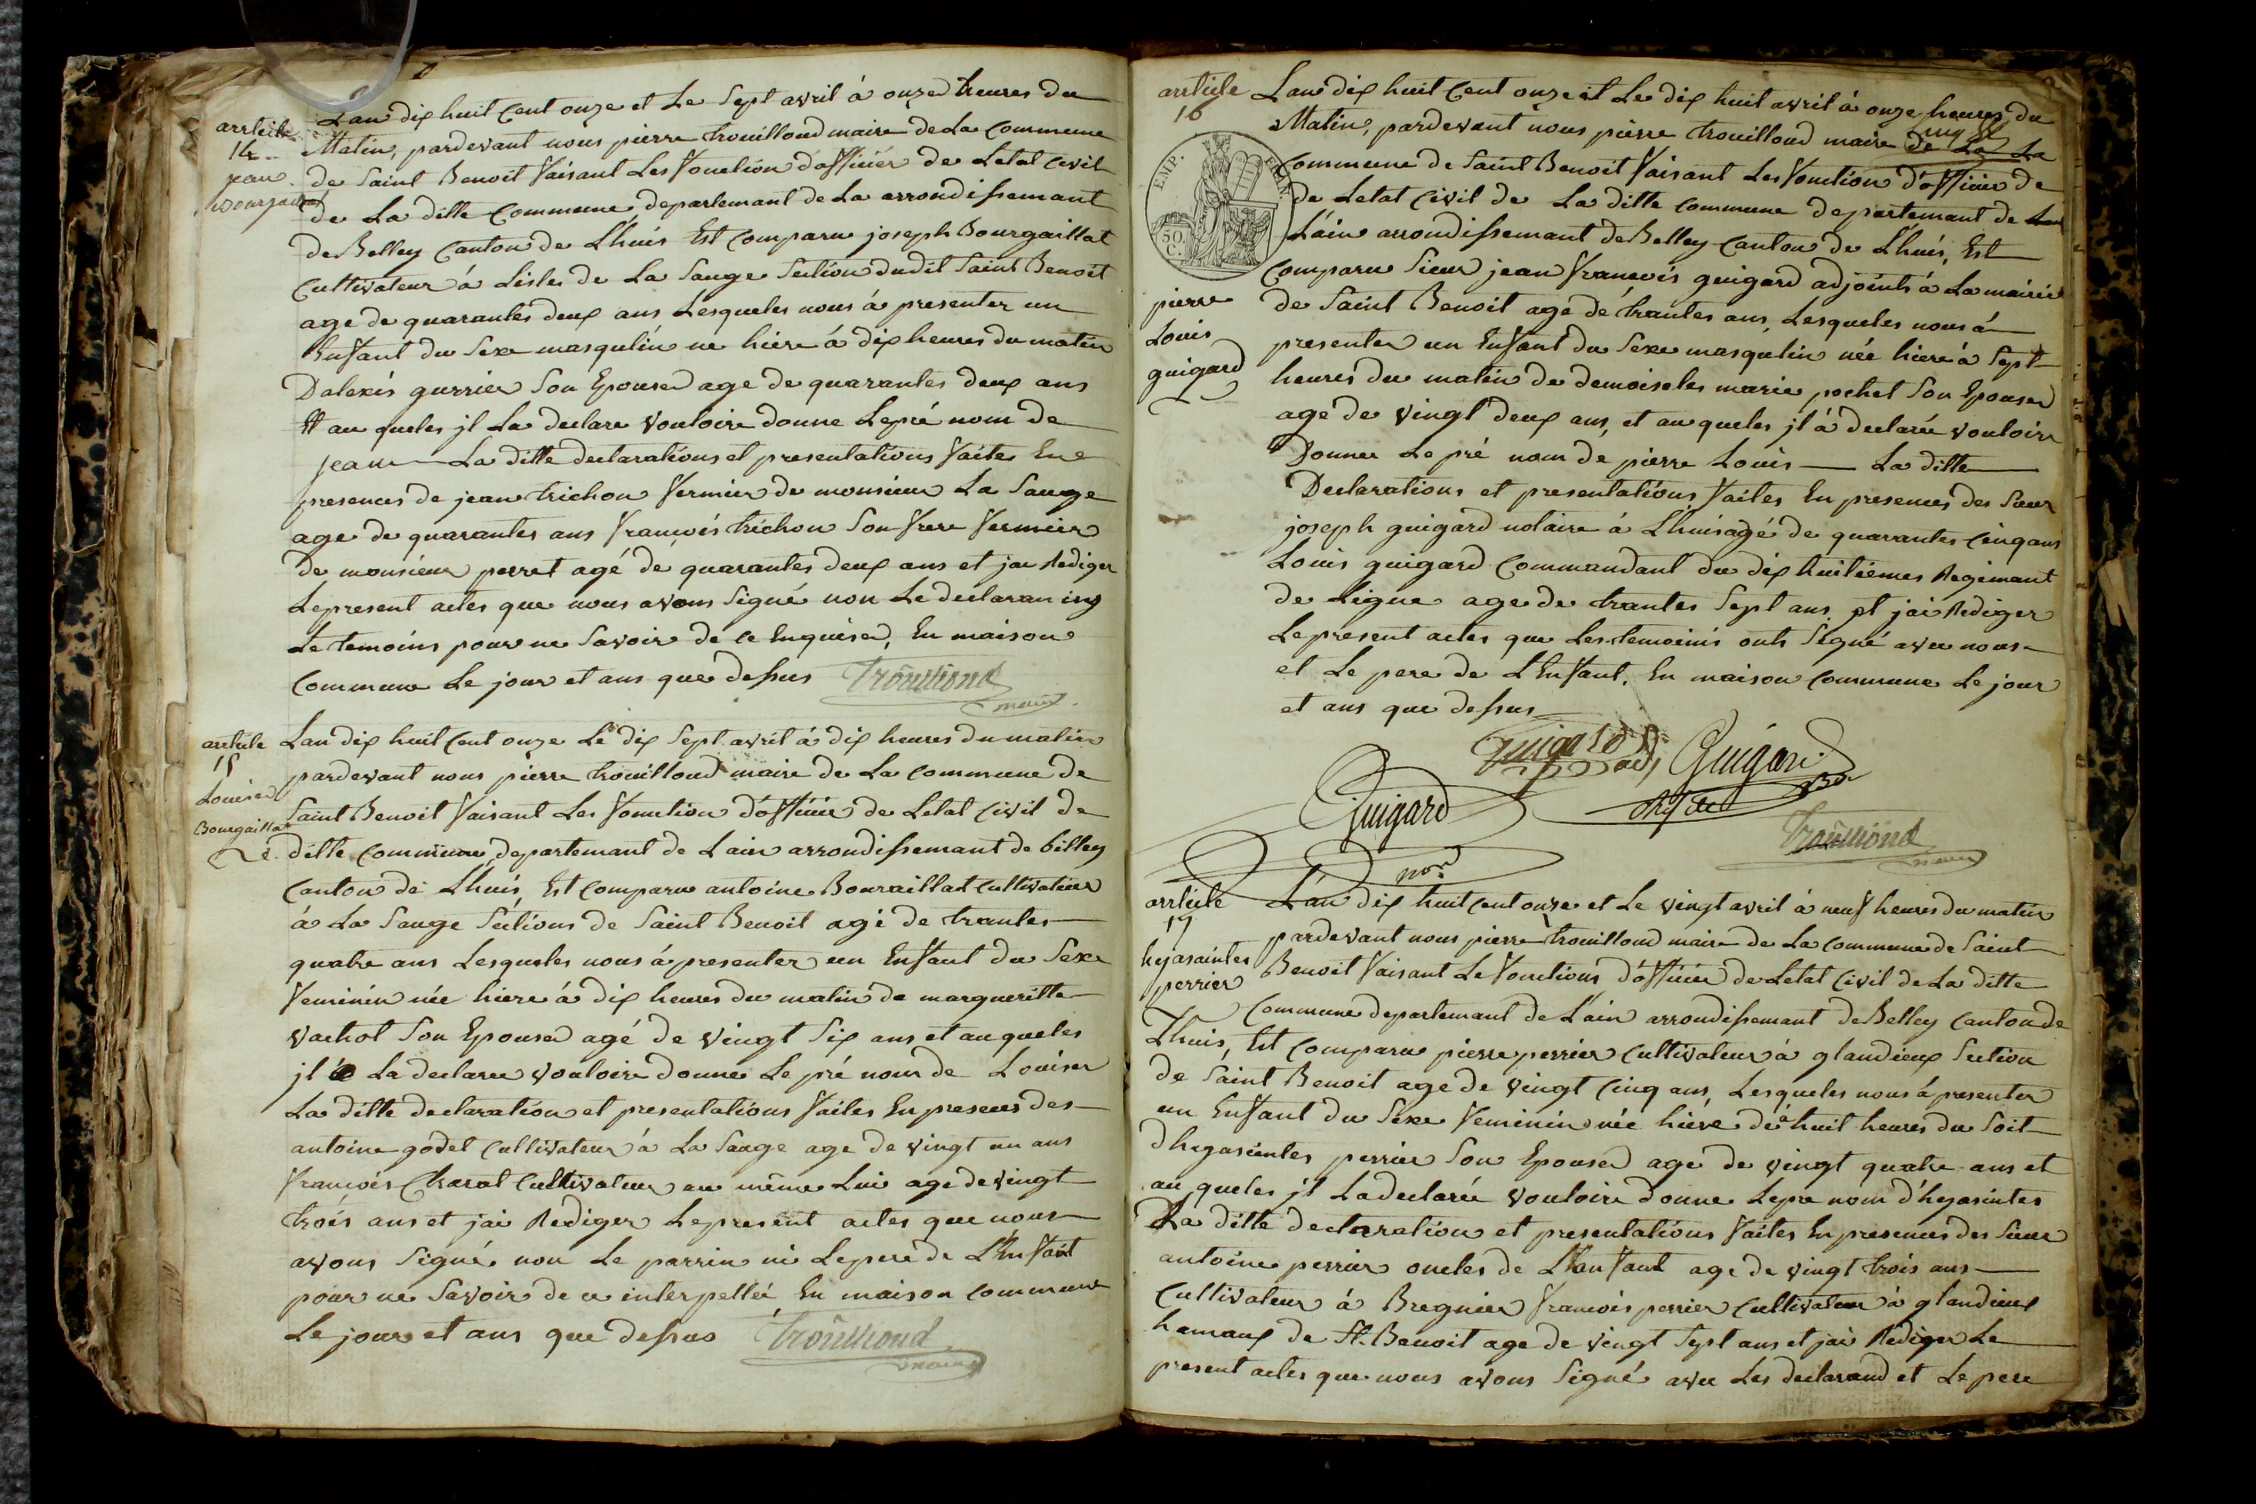 article
14
jean
Bourgaillat
Lan dix huit Cent onze et Le Sept avril à onze heures du
Matin, pardevant nous pierre trouilloud maire de La Commune
de Saint Benoit faisant Les fonction d'officier de Letat Civil
de La ditte Commune departemant de La arrondissemant
de Belley Canton de Lhuis Est Comparu joseph Bourgaillat
Cultivateur à Lisles de La Sauge Section dudit Saint Benoit
age de quarantes deux ans Lesqueles nous à presenter un
Enfant du Sexe masqulin ne hiere à dix heures du matin
Dalexis gurrier Son Epouse age de quarantes deux ans
Et au queles jl La declare vouloire donne Lepré nom de
jean La ditte declarations et presentations faites En
presences de jean trichon fermier de monsieur La Sauge
age de quarantes ans françois trichon Son frere fermier
De monsieur perret agé de quarantes deux ans et jai Rediger
Lepresent actes que nous avons Signé non Le declaran ny
Le temoins pour ne Savoir de ce Enquise, En maison
Commune Le jour et ans que dessus Trouilloud
maire
article
15
Louise
Bourgaillat
Lan dix huit Cent onze Le dix Sept avril à dix heures du matin
pardevant nous pierre trouilloud maire de La Commune de
Saint Benoit faisant Les fonction d'officier de Letat Civil de
ditte Commune departemant de Lain arrondissemant de billey
Canton de Lhuis, Est Comparu antoine Bouraillat Cultivateur
à La Sauge Sections de Saint Benoit agé de trantes
quatre ans Lesqueles nous à presenter un Enfant du Sexe
feminin née hiere à dix heures du matin de margueritte
vachot Son Epouse agé de vingt Six ans et au queles
jl La declaree vouloire donne Le pré nom de Louise
La ditte declaration et presentations faites En presences des
antoine godet Cultivateur à La Sauge age de vingt un ans
françois Charat Cultivateur au même Lui age de vingt
trois ans et jai Rediger Lepresent actes que nous
avons Signé non Le parrin ni Lepere de L'Enfant
pour ne Savoir de ce interpellée En maison Commune
Le jour et ans que dessus Trouilloud
maire
article
16
EMP.
50
C.
pierre
Louis
guigard
Lan dix huit Cent onze et Le dix huit avril à onze heures du
Matin, pardevant nous pierre trouilloud maire de La La
Commune de Saint Benoit faisant Les fonction d'officier de
de Letat Civil de La ditte Commune departemant de
L'ain arrondissemant de Belley Canton de Lhuis, Est
Comparu Sieur jean françois guigard adjoints à La mairie
de Saint Benoit age de trantes ans, Lesqueles nous à
presenter un Enfant du Sexe masqulin née hiere à Sept
heures du matin de demoiseles marie pochet Son Epouse
age de vingt deux ans, et au queles jl à declarée vouloire
Donner Le pré nom de pierre Louis La ditte
Declarations et presentations faites En presences des Sieur
joseph guigard notaire à Lhuis agé de quarantes Cinq ans
Louis guigard Commandant du dix huitiemes Regimant
de Ligne age de trantes Sept ans et jai Rediger
Lepresent actes que Les temoinis onts Signé avec nous
et Le pere de L'Enfant, En maison Commune Le jour
et ans que dessus
Guigard adj Guigard
Guigard
nore
Trouilloud
maire
article
17
hyasaintes
perrier
L'an dix huit cent onze et Le vingt avril à neuf heures du matin
pardevant nous pierre trouilloud maire de La Commune de Saint
Benoit faisant Le fonctions d'officier de Letat Civil de La ditte
Commune departemant de L'ain arrondissemant de Belley Canton de
Lhuis, Est Comparu pierre perrier Cultivateur à glandieux Section
de Saint Benoit age de vingt Cinq ans, Lesqueles nous à presenter
un Enfant du Sexe feminin née hiere dé à huit heures du Soit
Dhyasientes perrier Son Epouse age de vingt quatre ans et
au queles jl La declarée vouloire donne Lepre nom d'hyasintes
La ditte declaration et presentations faites En presences des Sieur
antoine perrier oncles de L'Enfant age de vingt trois ans
Cultivateur à Bregnier françois perrier Cultivateur à glandieux
hamaux de St. Benoit age de vingt Sept ans et jai Rediger Le
present actes que nous avons Signé avec Les declarand et Le pere